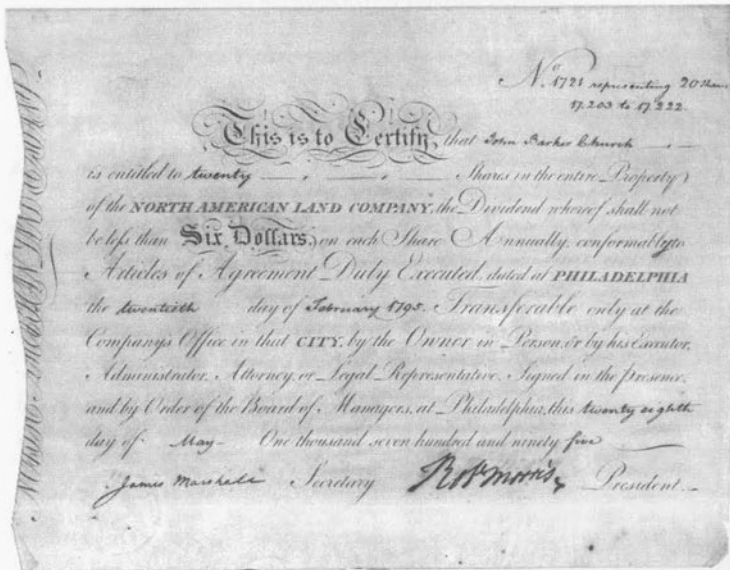 No. 1721 representing 20 Shares
17.203 to 17.222.
This is to Certify, that John Barker Church
is entitled to twenty Shares in the entire Property
of the NORTH AMERICAN LAND COMPANY, the Dividend whereof shall not
be less than Six Dollars, on each Share Annually, conformably to
Articles of Agreement Duly Executed, dated at PHILADELPHIA
the twentieth day of February 1795. Transferable only at the
Company's Office in that CITY, by the Owner in Person, or by his Executor,
Administrator, Attorney, or Legal Representative. Signed in the presence,
and by Order of the Board of Managers, at Philadelphia, this twenty eighth
day of May One thousand seven hundred and ninety five
James Marshall Secretary Robt Morris President.